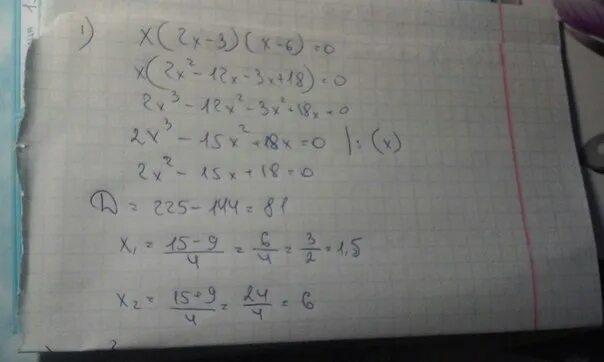 1) x(2x-3)(x-6)=0
x(2x²-12x-3x+18)=0
2x³-12x²-3x²+18x=0
2x³-15x²+18x=0 |:(x)
2x²-15x+18=0
D=225-144=81
x₁=\frac{15-9}{4}=\frac{6}{4}=\frac{3}{2}=1,5
x₂=\frac{15+9}{4}=\frac{24}{4}=6